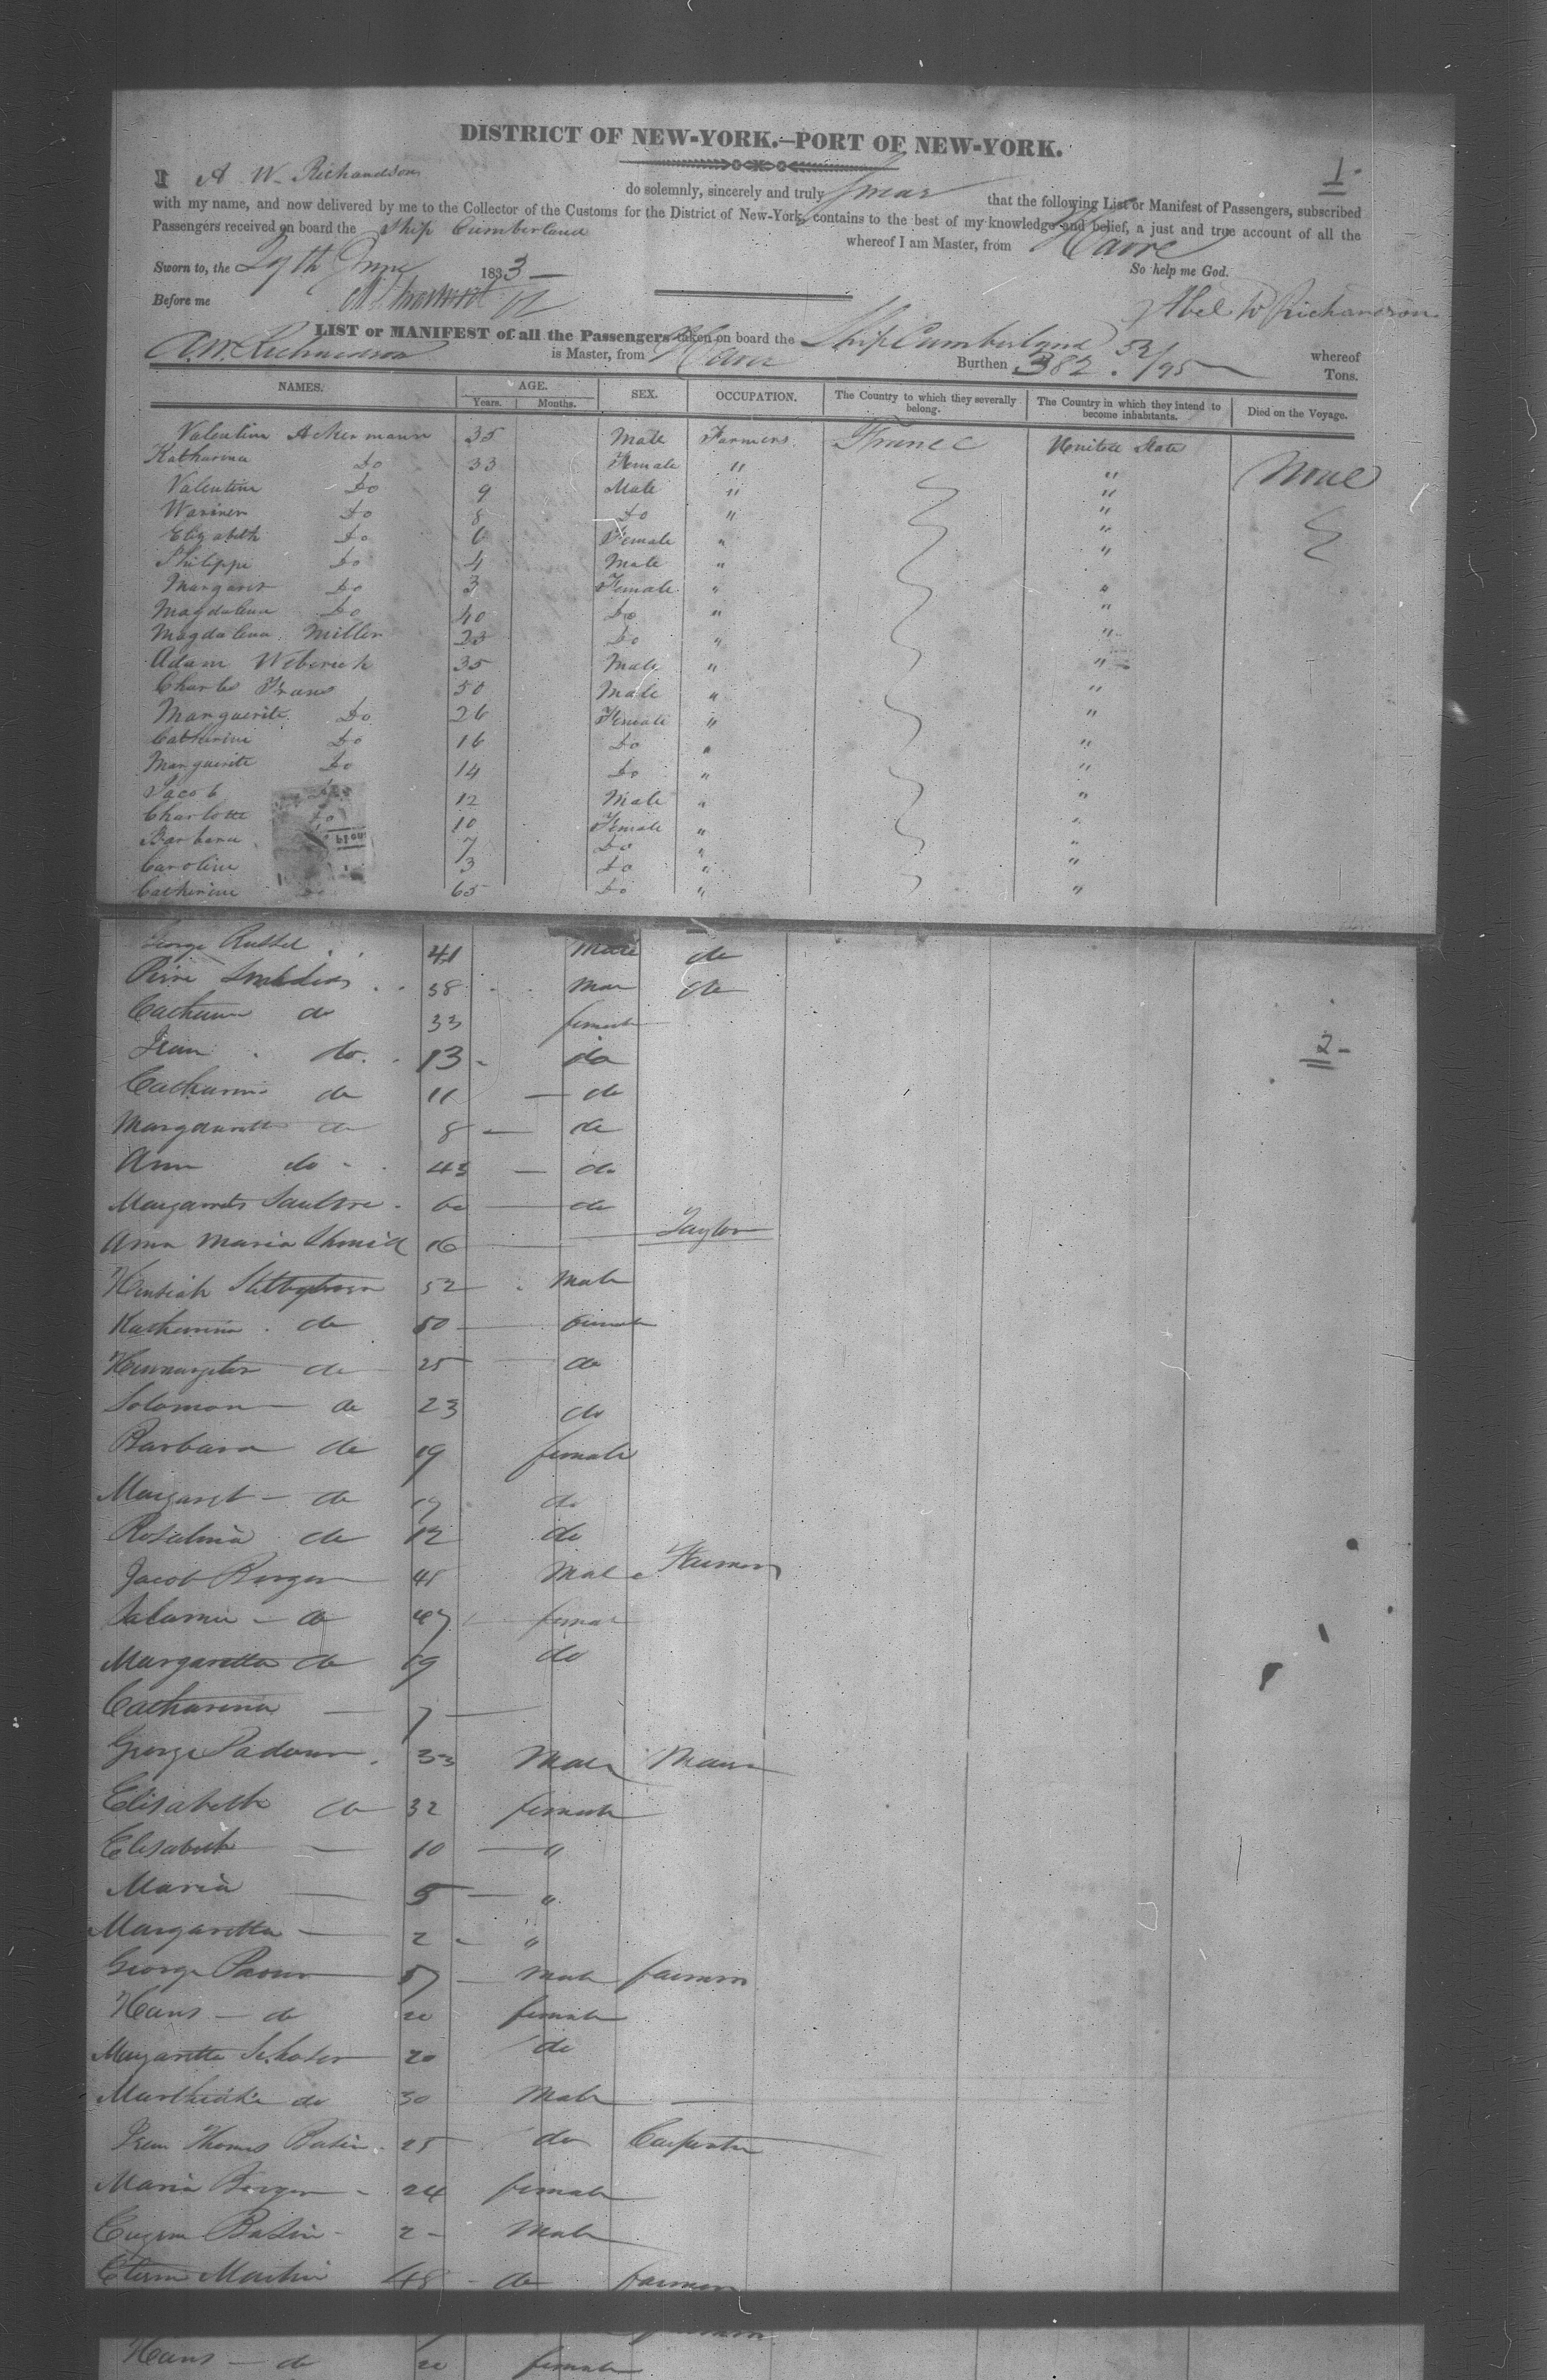 DISTRICT OF NEW-YORK.—PORT OF NEW-YORK.
1-
I A W. Richardson do solemnly, sincerely and truly swear that the following List or Manifest of Passengers, subscribed
with my name, and now delivered by me to the Collector of the Customs for the District of New-York, contains to the best of my knowledge and belief, a just and true account of all the
Passengers received on board the Ship Cumberland whereof I am Master, from Havre
Sworn to, the 29th June 1833 — So help me God.
Before me Abel W Richardson
LIST or MANIFEST of all the Passengers taken on board the Ship Cumberland whereof
A.W. Richardson is Master, from Havre Burthen 382 52/95 Tons.
NAMES. AGE. SEX. OCCUPATION. The Country to which they severally belong. The Country in which they intend to become inhabitants. Died on the Voyage.
Years. Months.
Valentine Ackermann 35 Male Farmers France United State
Katharina Do 33 Female " " None
Valentine Do 9 Male " "
Do 8 Do " "
Elizabeth Do 6 Female " "
Philippe Do 4 Male " "
Margaret Do 3 Female " "
Magdalena Do 40 Do " "
Magdalena Miller 23 Do " "
Adam Weberich 35 Male " "
Charles Frans 50 Male " "
Marguerite Do 26 Female " "
Catherine Do 16 Do " "
Marguerite Do 14 Do " "
Jacob Do 12 Male " "
Charlotte Do 10 Female " "
Barbara 7 Do " "
Caroline 3 Do " "
Catherine Do 65 Do " "
George Russel 41 Male do
Pierre 38 Mar do
Catherine do 33 female
Jean do 13 do 2-
Catharine do 11 — do
do 8 — do
Ann do 43 — do
Margareta — do
Anna Maria Schmid 16 Taylor
52 Male
Katherina do 50 female
do 25 do
Solomon do 23 do
Barbara do 19 female
Margaret — do do
Rosalina do 12 do
Jacob Berger 45 Male Farmer
Salamie — do 47 female
Margaretta do 19 do
Catharina — 7 —
George Padour 33 Male Mason
Elisabeth do 32 female
Elisabeth — 10 — "
Maria — 5 — "
Margaretta — 2 - "
George 57 — Male farmer
Hans — do 20 female
Margaretta Schater 20 do
do 30 Male —
Jean Thomas Basin 25 do Carpenter
Maria Berger - 24 female
Eugene Basin - 2 - Male
Etienne Martin 48 - do farmer
Hans — do 20 female